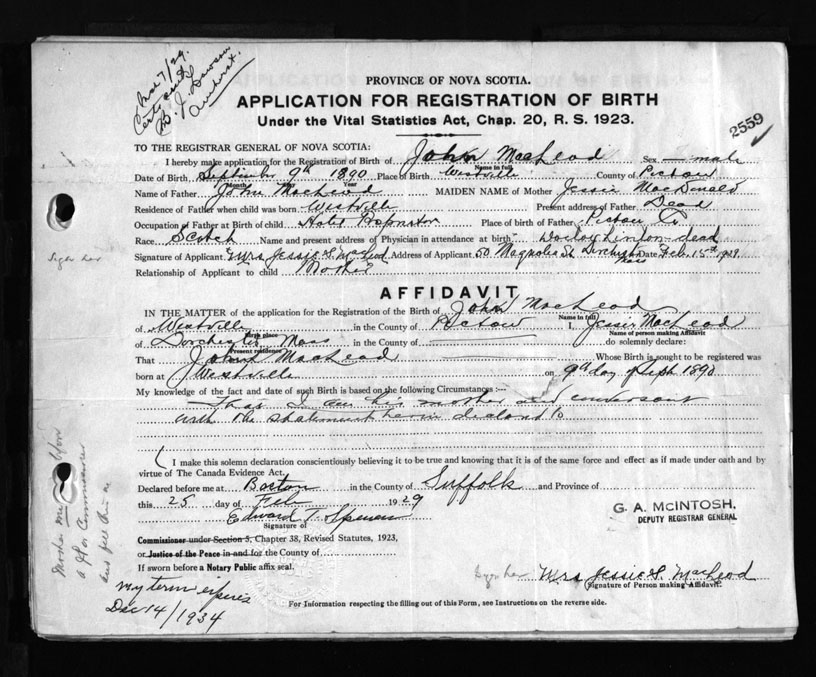 Mar 7/29.
Cert. sent
B. J. Dawson
Amherst.
PROVINCE OF NOVA SCOTIA.
APPLICATION FOR REGISTRATION OF BIRTH
Under the Vital Statistics Act, Chap. 20, R. S. 1923.
2559
TO THE REGISTRAR GENERAL OF NOVA SCOTIA:
I hereby make application for the Registration of Birth of John MacLeod Sex male
Name in full
Date of Birth September 9th 1890 Place of Birth Westville County of Pictou
Month Day Year
Name of Father John MacLeod MAIDEN NAME of Mother Jessie MacDonald
Residence of Father when child was born Westville Present address of Father Dead
Occupation of Father at Birth of child Hotel Place of birth of Father Pictou Co
Race Scotch Name and present address of Physician in attendance at birth Doctor dead
Signature of Applicant Mrs Jessie S. McLeod Address of Applicant 50 Magnolia St Dorchester Mass Date Feb. 15th 1929.
Relationship of Applicant to child Mother
AFFIDAVIT
IN THE MATTER of the application for the Registration of the Birth of John MacLeod
Name in full
of Westville in the County of Pictou I, Jessie MacLeod
Birth place Name of person making Affidavit
of Dorchester Mass in the County of do solemnly declare:
Present residence
That John MacLead Whose Birth is sought to be registered was
born at Westville on 9th day of Sept. 1890
My knowledge of the fact and date of such Birth is based on the following Circumstances:
that I am his mother and conversant
with the statement herein declared to
I make this solemn declaration conscientiously believing it to be true and knowing that it is of the same force and effect as if made under oath and by
virtue of The Canada Evidence Act.
Declared before me at Boston in the County of Suffolk and Province of
this 25 day of Feb 1929
G. A. McINTOSH,
DEPUTY REGISTRAR GENERAL
Edward T.
Signature of
Commissioner under Section 5, Chapter 38, Revised Statutes, 1923,
or Justice of the Peace in and for the County of
If sworn before a Notary Public affix seal.
Sign her Mrs Jessie S. MacLeod
(Signature of Person making Affidavit.
My term expires
Dec 14/1934
For Information respecting the filling out of this Form, see Instructions on the reverse side.
Sign her